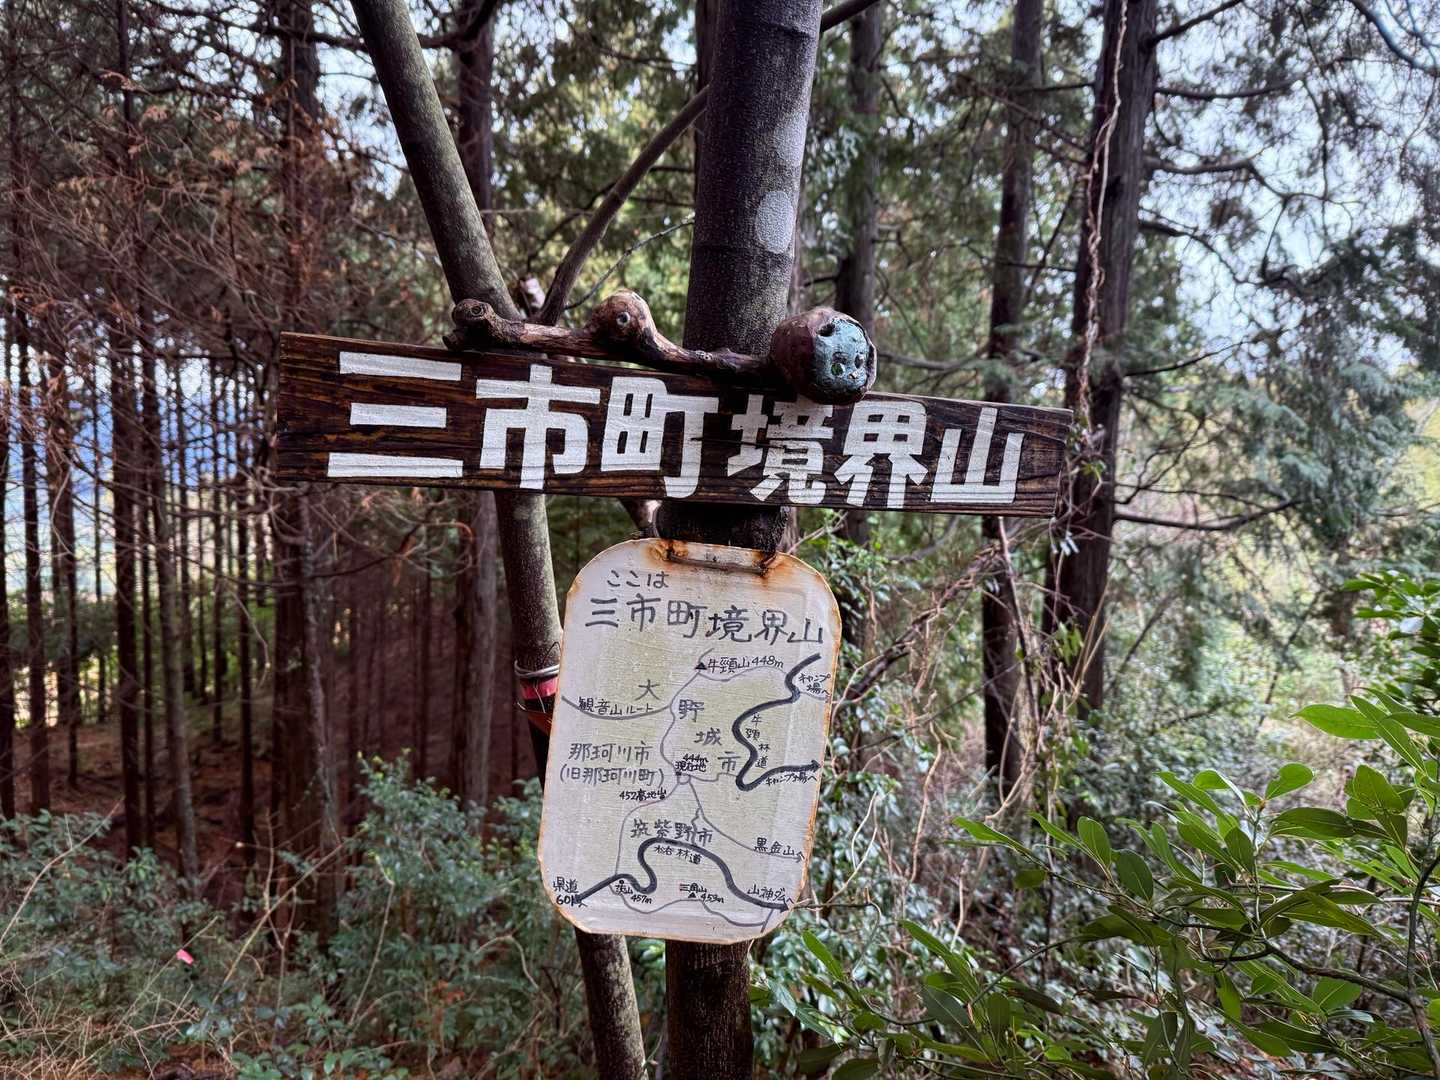 三市町境界山
ここは
三市町境界山
牛頸山 448m
キャンプ
場へ
大
野
城
市
観音山ルート
牛
頸
林
道
那珂川市
(旧那珂川町)
444m
現在地
キャンプ場へ
452高地
筑紫野市
林道
黒金山
県道
601へ
457m
三角山
453m
山神ダムへ